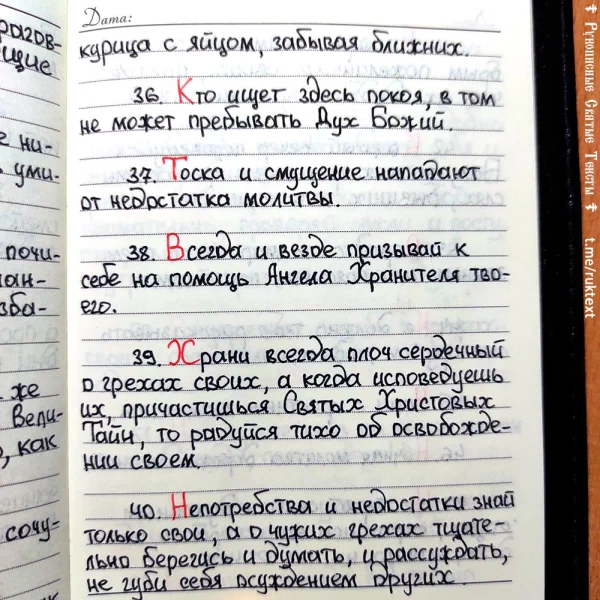 Дата:
курица с яйцом, забывая ближних.
36. Кто ищет здесь покоя, в том
не может пребывать Дух Божий.
37. Тоска и смущение нападают
от недостатка молитвы.
38. Всегда и везде призывай к
себе на помощь Ангела Хранителя тво-
его.
39. Храни всегда плач сердечный
о грехах своих, а когда исповедуешь
их, причастишься Святых Христовых
Тайн, то радуйся тихо об освобожде-
нии своем.
40. Непотребства и недостатки знай
только свои, а о чужих грехах тщате-
льно берегись и думать, и рассуждать,
не губи себя осуждением других.
ующие
е ни-
ь уми-
почи-
же
Вели-
о, как
сочу-
Рукописные Святые Тексты
t.me/ruktext